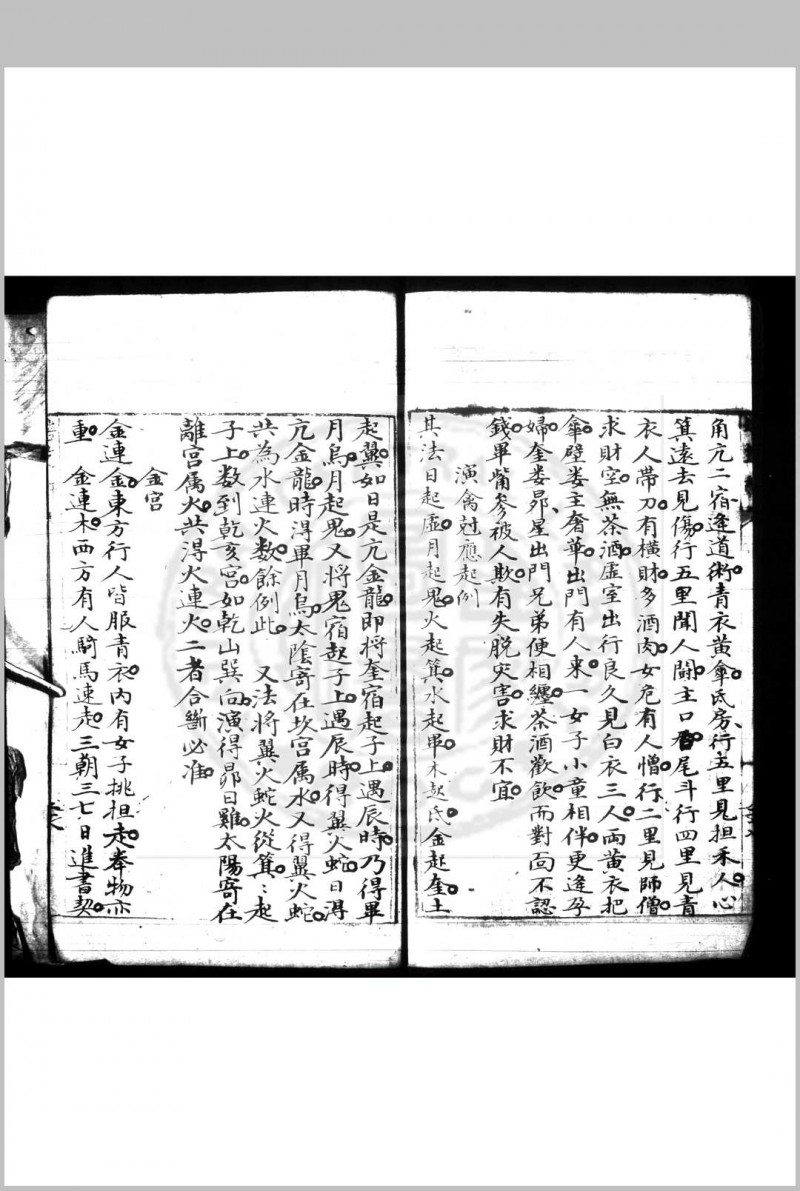 角亢二宿逢道術青衣黄傘氐房行五里見担禾人心
箕遠去見傷行五里聞人鬪主口唇尾斗行四里見青
衣人帶刀有横財多酒肉女危有人憎行二里見師僧
求財空無茶酒虛室出行良久見白衣三人両黄衣把
傘壁婁主奢華出門有人來一女子小童相伴更逢孕
婦奎婁昴星出門兄弟便相纏茶酒歡飲而對面不認
錢畢觜參被人欺有失脱灾害求財不宜
演禽尅應起例
其法日起虛月起鬼火起箕水起畢木起氐金起奎土
起翼如日是亢金龍即將奎宿起子上遇辰時乃得畢
月烏月起鬼又將鬼宿起子上遇辰時得翼火蛇日得
亢金龍時得畢月烏太陰寄在坎宮属水又得翼火蛇
共為水連火数餘例此　又法將翼火蛇火從箕〻起
子上数到乾亥宮如乾山巽向演得昴日雞太陽寄在
離宮属火共得火連火二者合斷必准
金宮
金連金東方行人皆服青衣内有女子挑担走奉物亦
重　金連木西方有人騎馬速走三朝三七日進書契